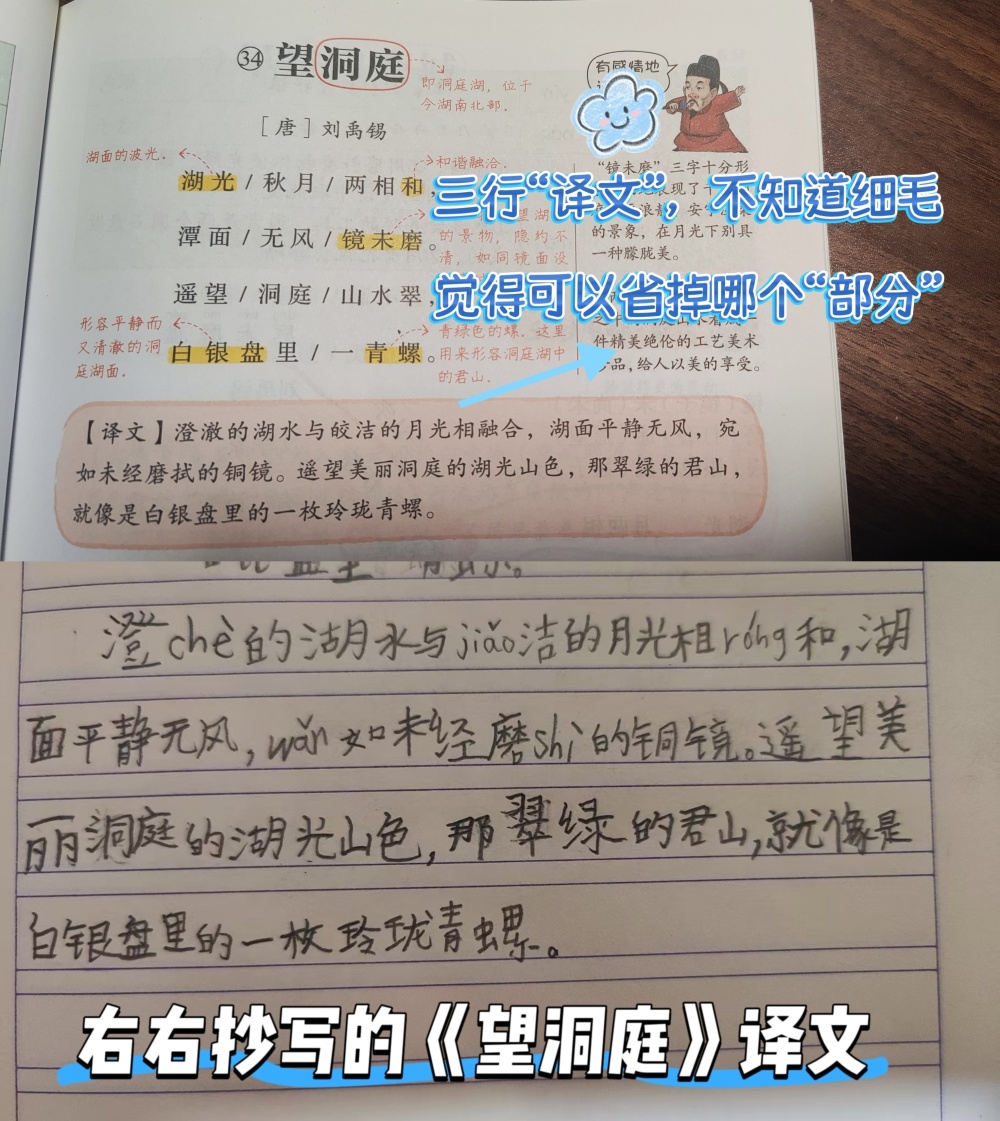 ㉞ 望洞庭
即洞庭湖，位于
今湖南北部．
有感情地
［唐］刘禹锡
湖面的波光．
和谐融洽．
湖光/秋月/两相和，
潭面/无风/镜未磨。
的景物，隐约不
清，如同镜面没
遥望/洞庭/山水翠，
形容平静而
又清澈的洞
庭湖面．
白银盘里/一青螺。
青绿色的螺．这里
用来形容洞庭湖中
的君山．
“镜未磨”三字十分形
的景象，在月光下别具
一种朦胧美。
件精美绝伦的工艺美术
品，给人以美的享受。
三行“译文”，不知道细毛
觉得可以省掉哪个“部分”
【译文】澄澈的湖水与皎洁的月光相融合，湖面平静无风，宛
如未经磨拭的铜镜。遥望美丽洞庭的湖光山色，那翠绿的君山，
就像是白银盘里的一枚玲珑青螺。
澄chè的湖水与jiǎo洁的月光相róng和，湖
面平静无风，wǎn如未经磨shì的铜镜。遥望美
丽洞庭的湖光山色，那翠绿的君山，就像是
白银盘里的一枚玲珑青螺。
右右抄写的《望洞庭》译文